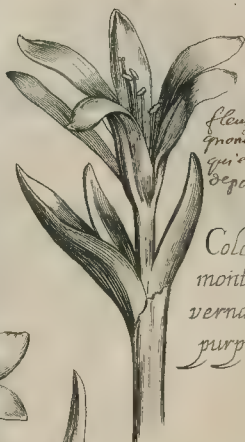 fleu
qui
depo
Colc
mont
verna
purp